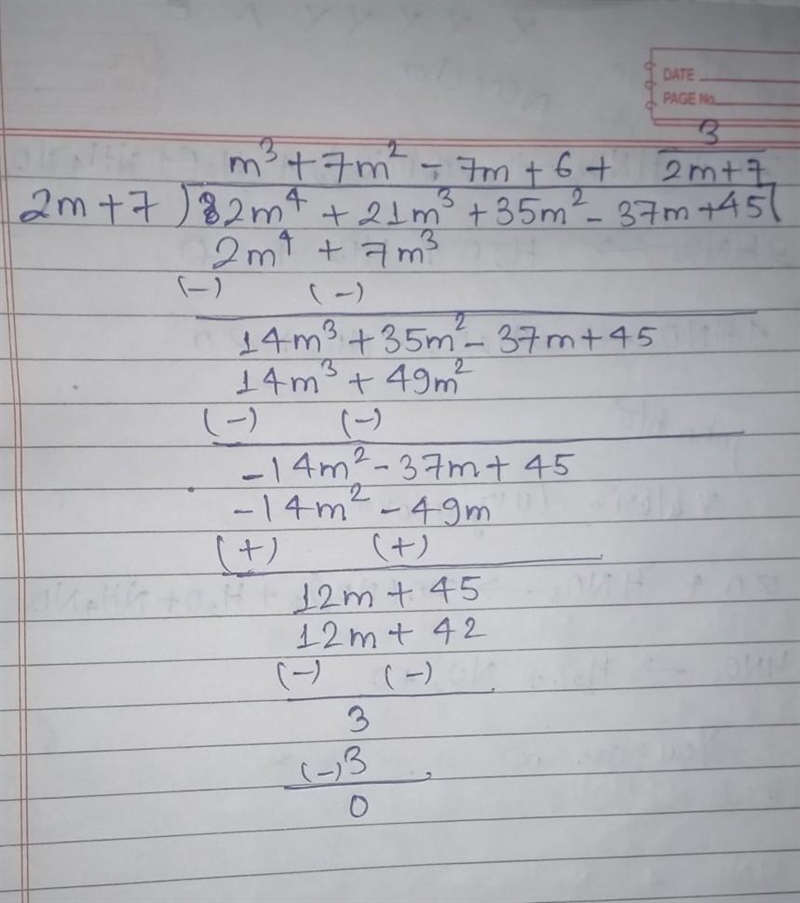 DATE
PAGE No.
3
m³ + 7m² - 7m + 6 + 2m+7
2m + 7 ) 2m⁴ + 21m³ + 35m² - 37m + 45 (
2m⁴ + 7m³
(-) (-)
14m³ + 35m² - 37m + 45
14m³ + 49m²
(-) (-)
-14m² - 37m + 45
-14m² - 49m
(+) (+)
12m + 45
12m + 42
(-) (-)
3
(-)3
0